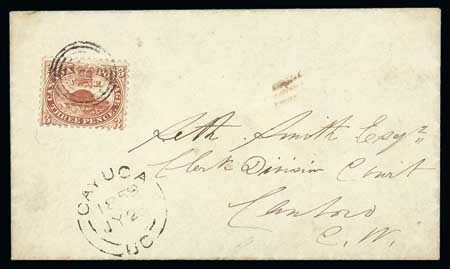 THREE PENCE
CAYUGA
1859
JY 2
UC
Seth Smith Esqr
Clerk Division Court
Canboro
C. W.